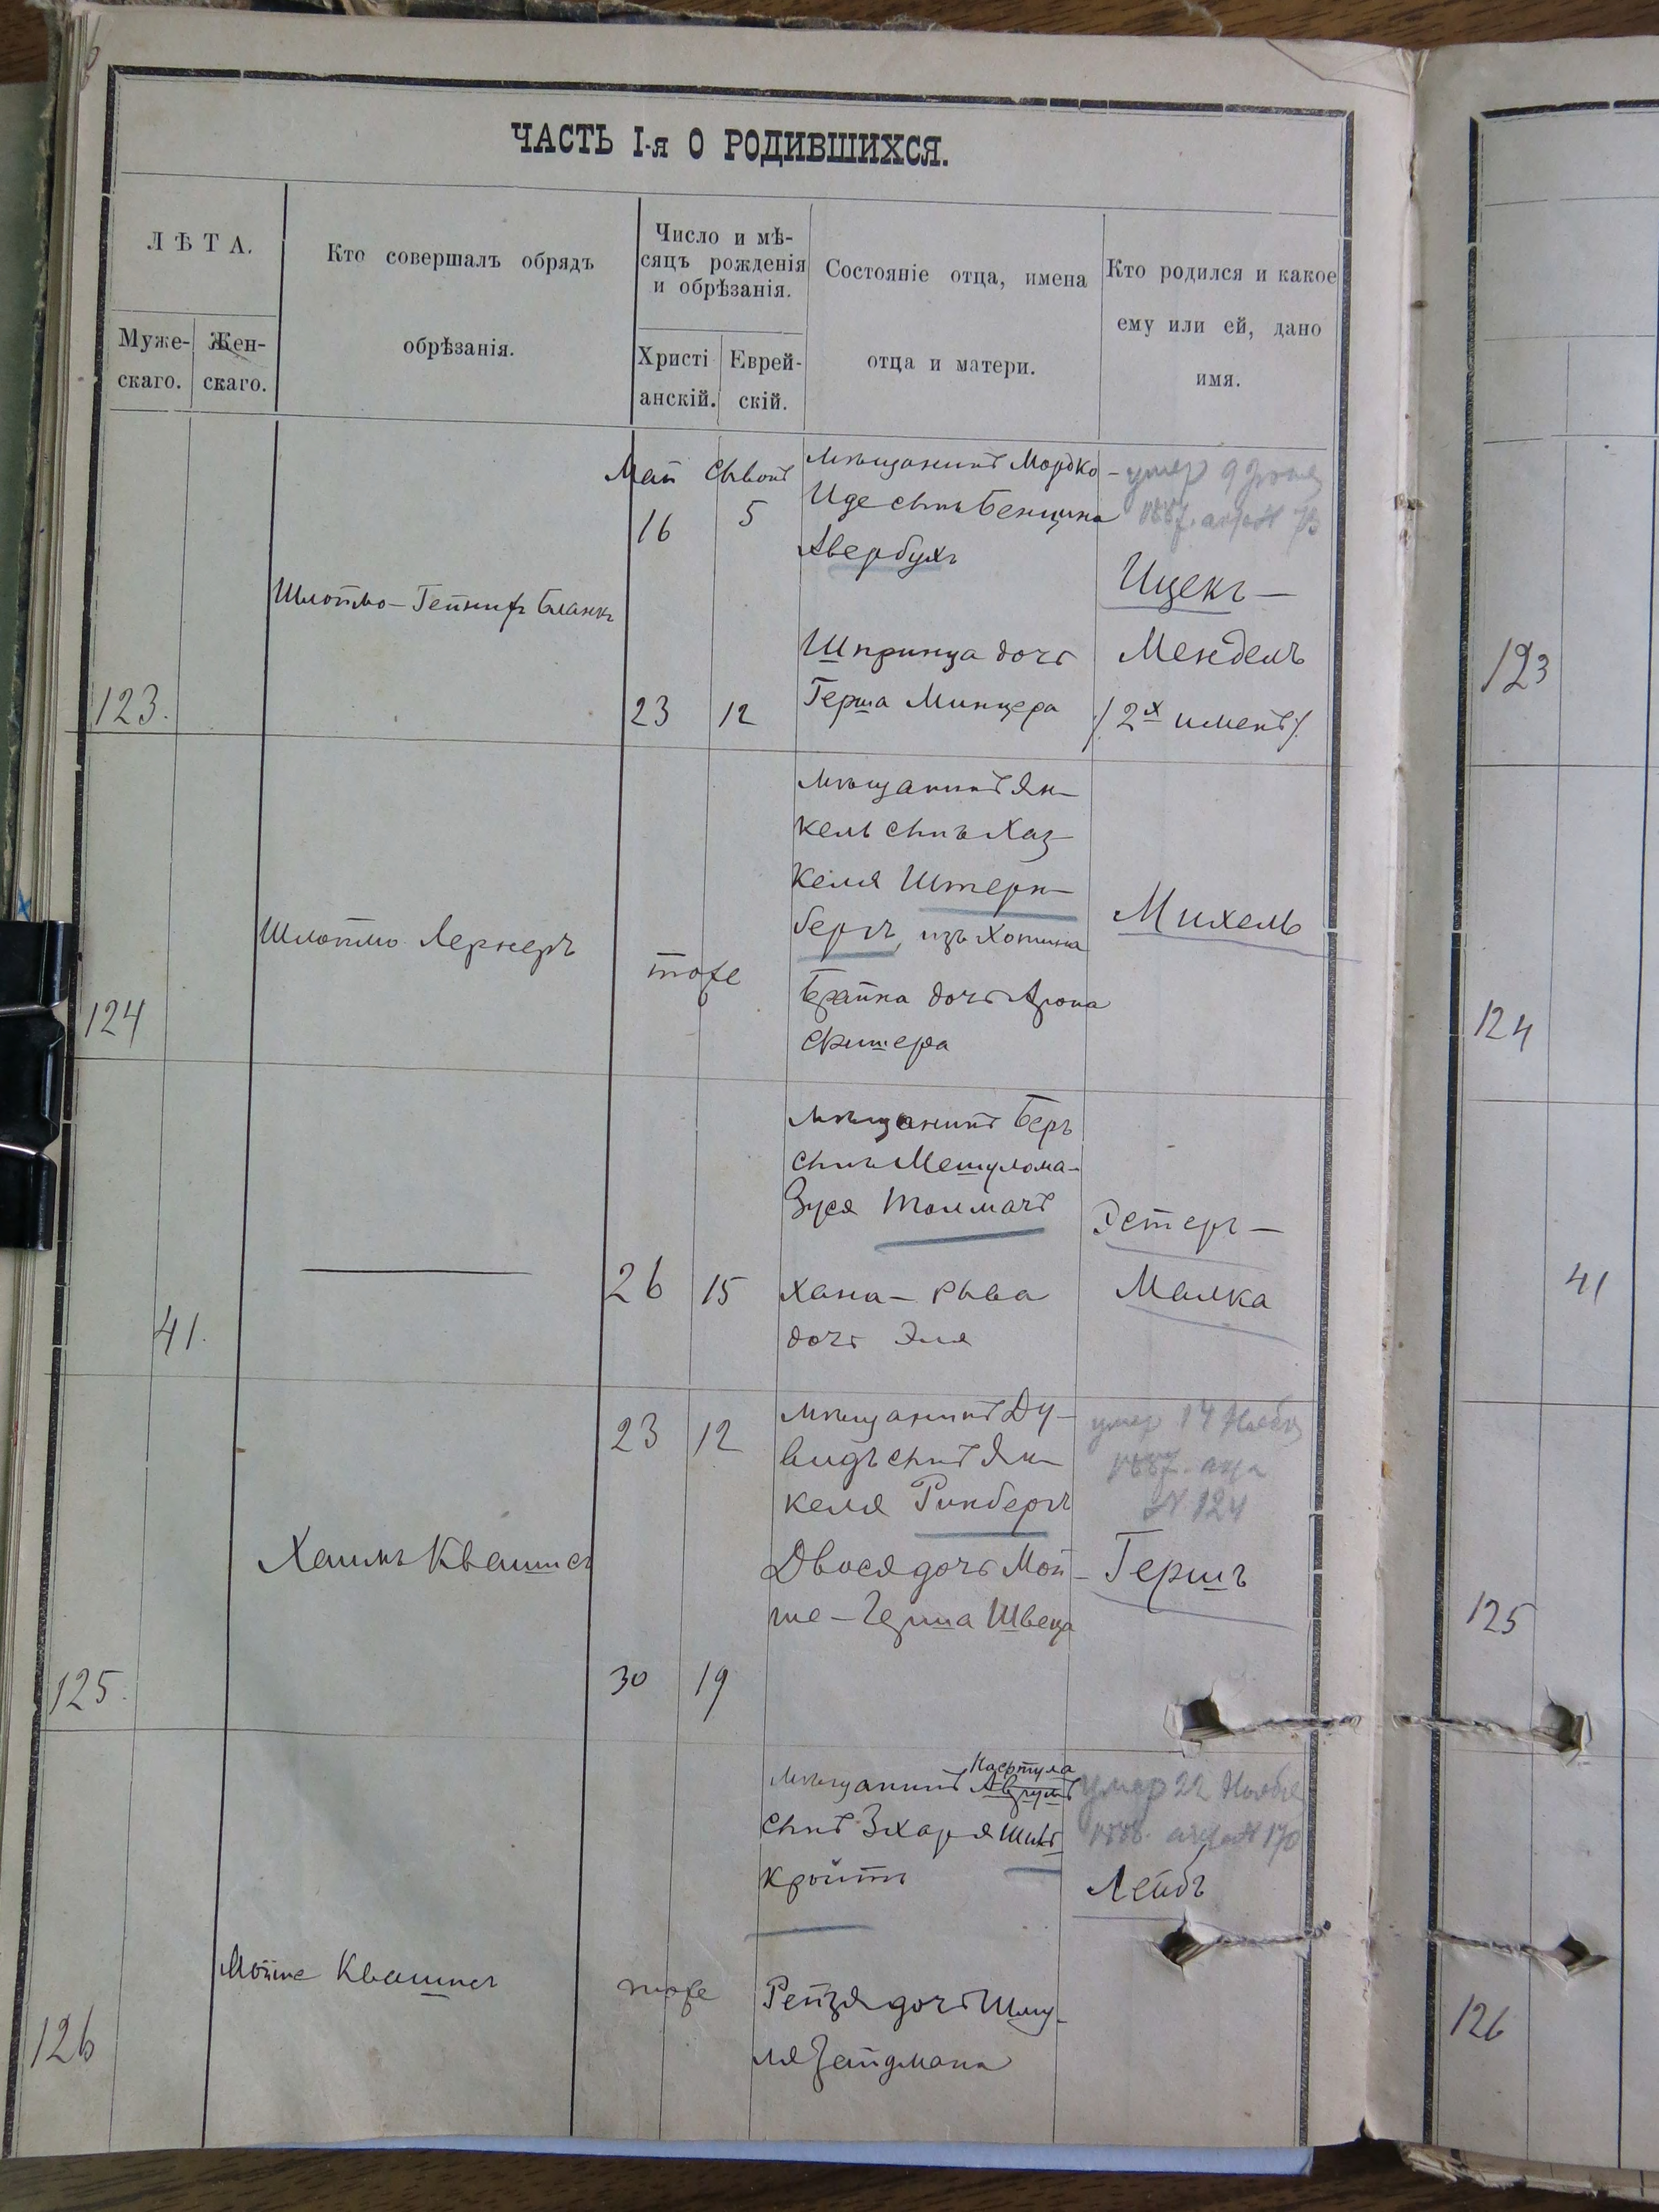 ЧАСТЬ I-я О РОДИВШИХСЯ.
ЛѢТА.
Муже-
скаго.
Жен-
скаго.
Кто совершалъ обрядъ
обрѣзанія.
Число и мѣ-
сяцъ рожденія
и обрѣзанія.
Христі
анскій.
Еврей-
скій.
Состояніе отца, имена
отца и матери.
Кто родился и какое
ему или ей, дано
имя.
123.
Шлоймо-Гейнихъ Бланкъ
Май Сывонъ
16 5
23 12
Мѣщанинъ Мордко-
Иде сынъ Бенциона
Авербухъ
Шпринца дочь
Герша Минцера
умер 9 Іюня
1887.
Ицекъ-
Мендель
/2х именъ/.
124
Шлоймо Лернеръ
тоже
Мѣщанинъ Ян-
кель сынъ Хаз-
келя Штерн-
бергъ, изъ Хотина
Брайна дочь Арона
Скитера
Михель
41.
26 15
Мѣщанинъ Беръ
сынъ Мешулома-
Зуся Толмачъ
Хана-Рыва
дочь Эля
Эстеръ-
Малка
125.
Хаимъ Квашнсъ
23 12
30 19
Мѣщанинъ Ду-
видъ сынъ Ян-
келя Ринбергъ
Двося дочь Мой-
ше-Герша Швеца
умер 14 Нояб
1887.
№ 124
Гершъ
126
Мойше Квашнсъ
тоже
Мѣщанинъ Аврумъ
сынъ Зхаря Шикъ
кройтъ
Рейзя дочь Шму-
ля Зайдмана
умер 22 Ноября
170
Лейбъ
123
124
41
125
126